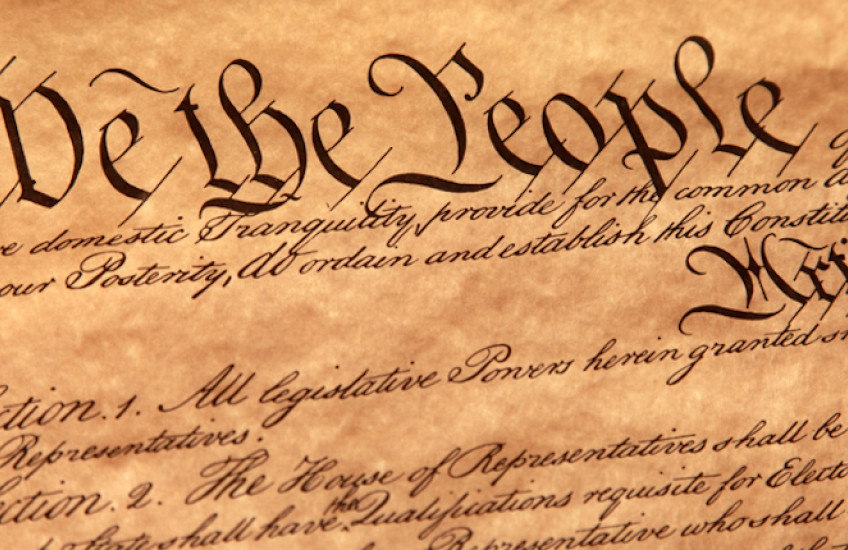 We the People
domestic Tranquility, provide for the common
our Posterity, do ordain and establish this
Section. 1. All legislative Powers herein granted
Representatives.
Section. 2. The House of Representatives shall be
the
State shall have Qualifications requisite for
Representative who shall